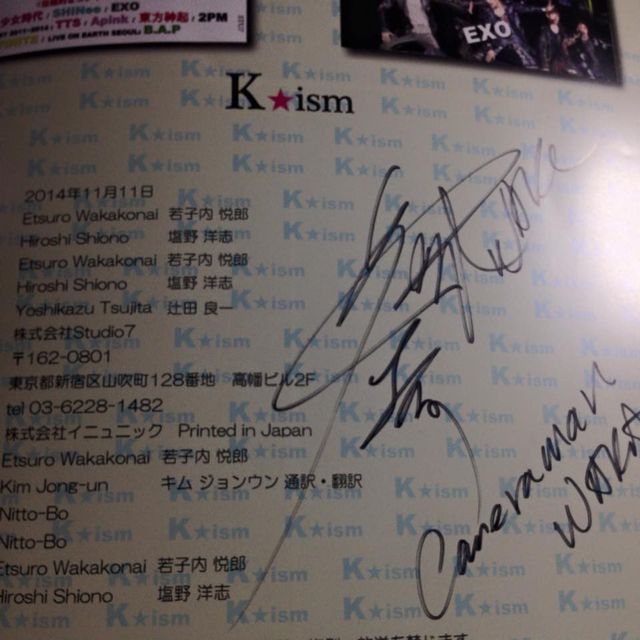 少女時代 : SHINee : EXO
TTS : Apink : 東方神起 : 2PM
: LIVE ON EARTH SEOUL : B.A.P
EXO
K★ism
2014年11月11日
Etsuro Wakakonai 若子内 悦郎
Hiroshi Shiono 塩野 洋志
Etsuro Wakakonai 若子内 悦郎
Hiroshi Shiono 塩野 洋志
Yoshikazu Tsujita 辻田 良一
株式会社Studio7
〒162-0801
東京都新宿区山吹町128番地 高幡ビル2F
tel 03-6228-1482
株式会社イニュニック Printed in Japan
Etsuro Wakakonai 若子内 悦郎
Kim Jong-un キム ジョンウン 通訳・翻訳
Nitto-Bo
Nitto-Bo
Etsuro Wakakonai 若子内 悦郎
Hiroshi Shiono 塩野 洋志
Cameraman
WAKA